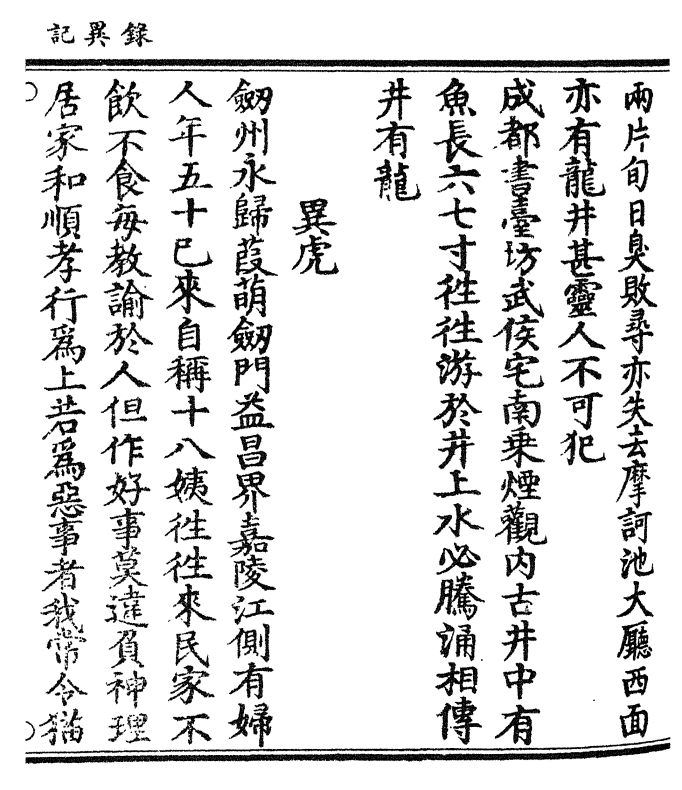 錄異記
兩片旬日臭敗尋亦失去摩訶池大廳西面
亦有龍井甚靈人不可犯
成都書臺坊武侯宅南乗煙觀内古井中有
魚長六七寸徃徃游於井上水必騰涌相傳
井有龍
異虎
劒州永歸葭萌劒門益昌界嘉陵江側有婦
人年五十已來自稱十八姨徃徃來民家不
飲不食每教諭於人但作好事莫違負神理
居家和順孝行爲上若爲惡事者我常令猫